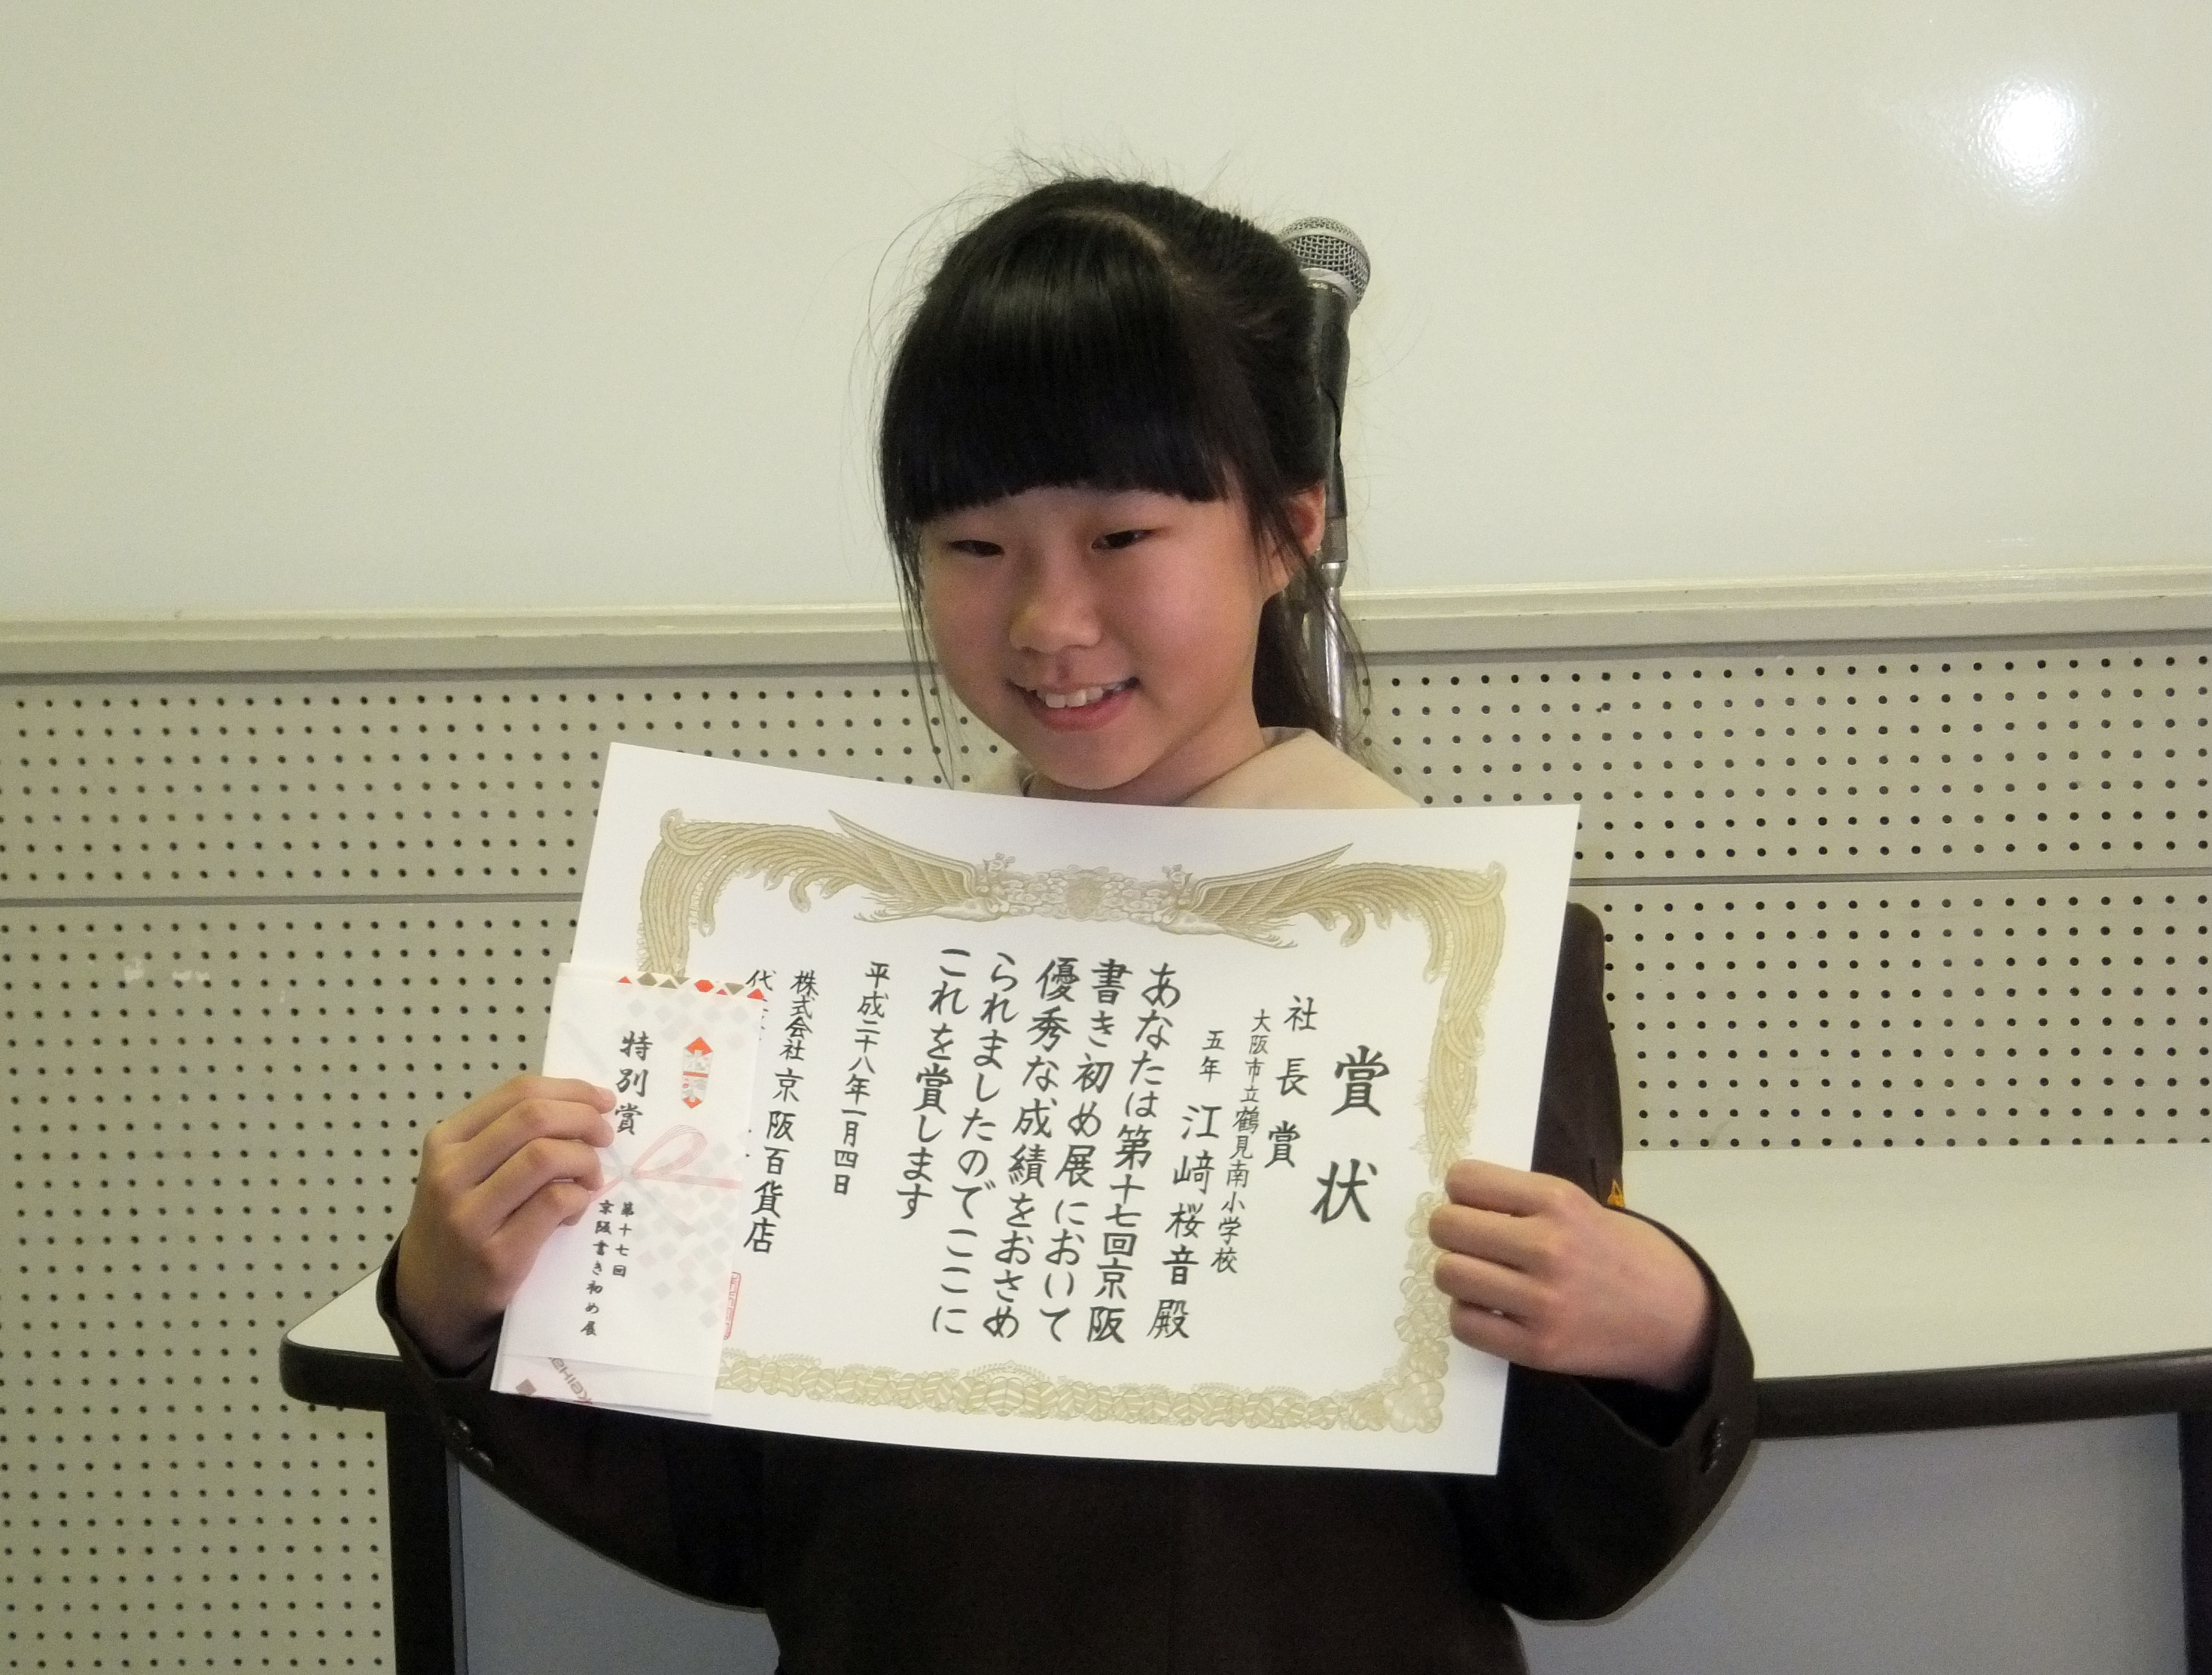 賞状
社長賞
大阪市立鶴見南小学校
五年 江﨑桜音殿
あなたは第十七回京阪
書き初め展において
優秀な成績をおさめ
られましたのでここに
これを賞します
平成二十八年一月四日
株式会社京阪百貨店
代
特別賞
第十七回
京阪書き初め展